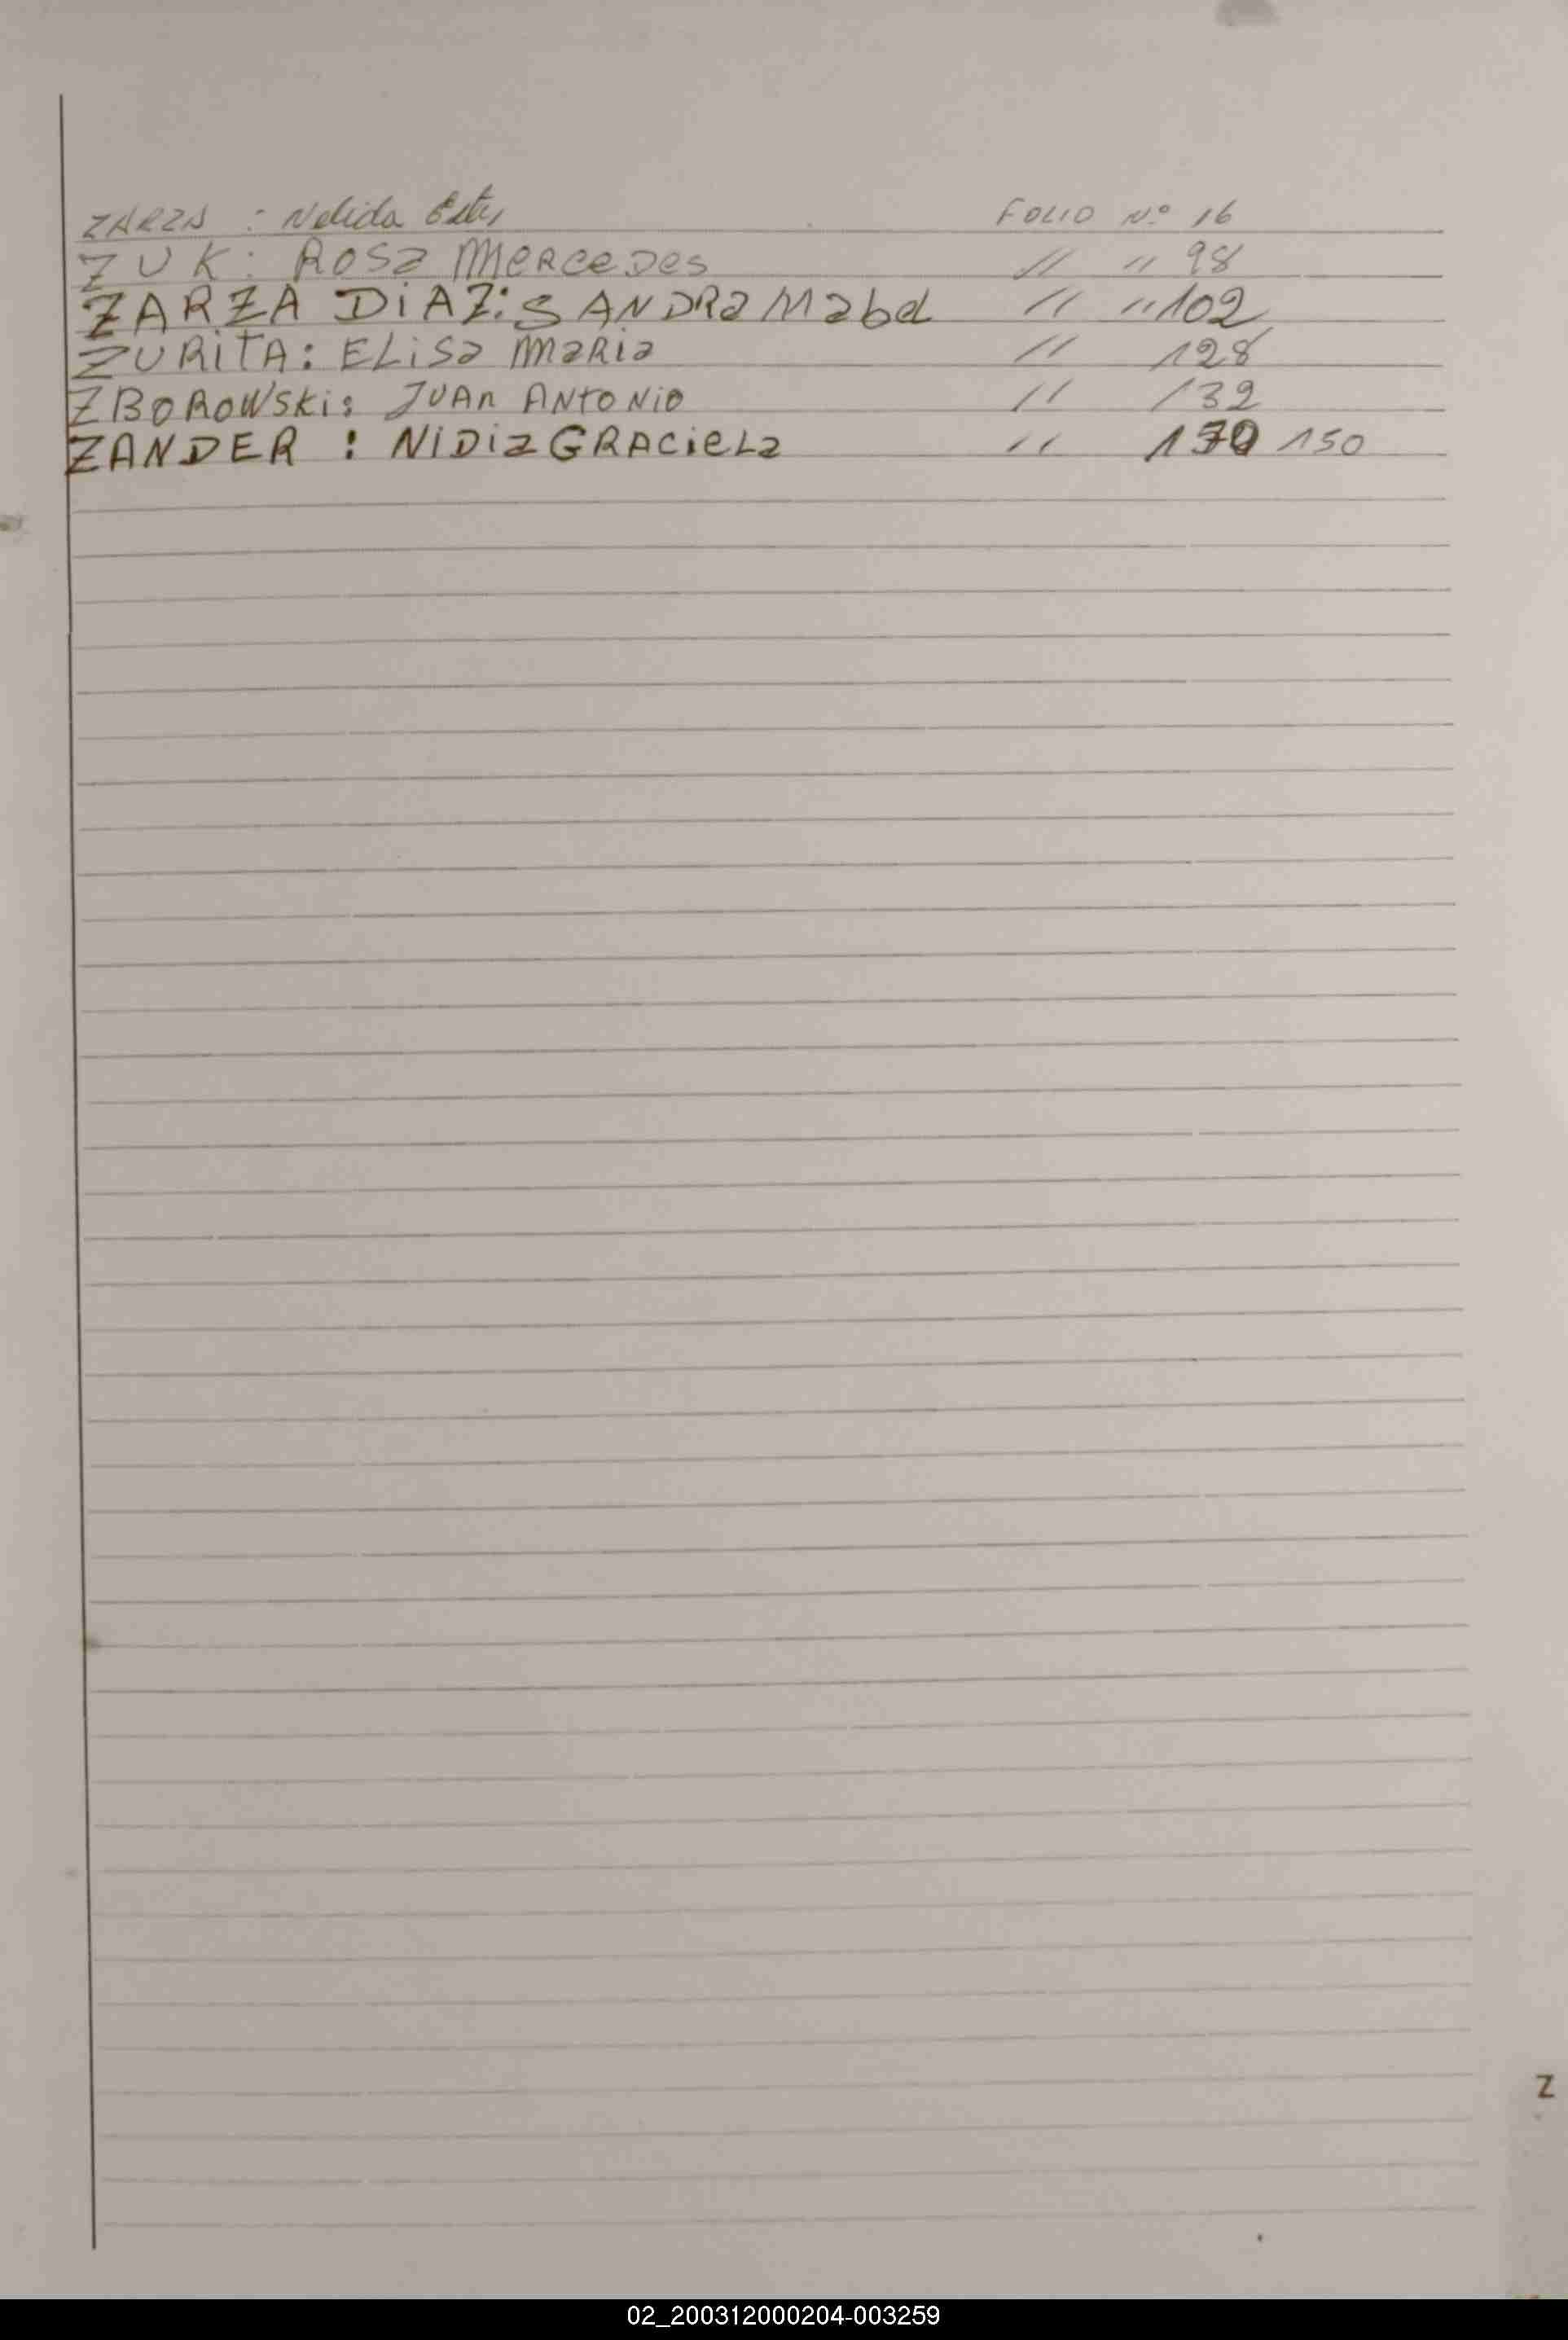 ZARZA : Nelida Ester FOLIO Nº 16
ZUK: ROSa MeRceDes // // 98
ZARZA DiAZ: SANDRa Mabel // // 102
ZURiTA: ELiSa MaRia // 128
ZBOROWSki: JUAn ANtONiO // 132
ZANDER : NiDia GRACieLa // 170 150
Z
02_200312000204-003259